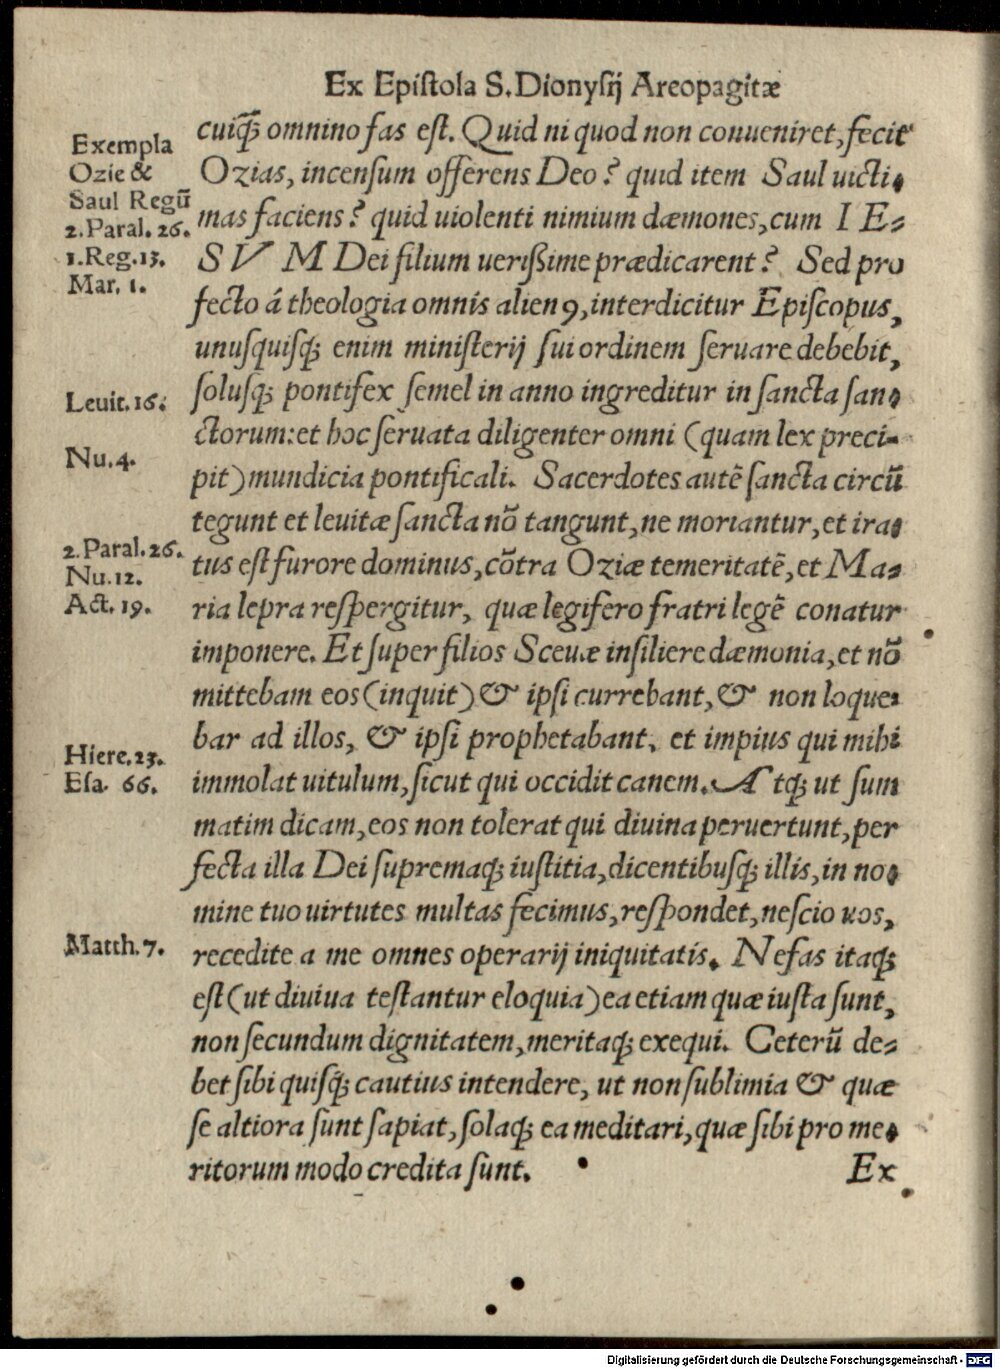 Ex Epistola S. Dionysij Areopagitæ
Exempla
Ozie &
Saul Regũ
2. Paral. 26.
1. Reg. 13.
Mar. 1.
Leuit. 16.
Nu. 4.
2. Paral. 26.
Nu. 12.
Act. 19.
Hiere. 23.
Esa. 66.
Matth. 7.
cuiq̃; omnino fas est. Quid ni quod non conueniret, fecit
Ozias, incensum offerens Deo? quid item Saul uicti-
mas faciens? quid uiolenti nimium dæmones, cum IE-
SVM Dei filium uerißime prædicarent? Sed pro
fecto á theologia omnis alienꝰ, interdicitur Episcopus,
unusquisq; enim ministerij sui ordinem seruare debebit,
solusq; pontifex semel in anno ingreditur in sancta san-
ctorum: et hoc seruata diligenter omni (quam lex preci-
pit) mundicia pontificali. Sacerdotes autẽ sancta circũ
tegunt et leuitæ sancta nõ tangunt, ne moriantur, et ira-
tus est furore dominus, cõtra Oziæ temeritatẽ, et Ma-
ria lepra respergitur, quæ legifero fratri legẽ conatur
imponere. Et super filios Sceuæ insiliere dæmonia, et nõ
mittebam eos (inquit) & ipsi currebant, & non loque-
bar ad illos, & ipsi prophetabant, et impius qui mihi
immolat uitulum, sicut qui occidit canem. Atq; ut sum
matim dicam, eos non tolerat qui diuina peruertunt, per
fecta illa Dei supremaq; iustitia, dicentibusq; illis, in no-
mine tuo uirtutes multas fecimus, respondet, nescio uos,
recedite a me omnes operarij iniquitatis. Nefas itaq;
est (ut diuiua testantur eloquia) ea etiam quæ iusta sunt,
non secundum dignitatem, meritaq; exequi. Ceterũ de-
bet sibi quisq̃; cautius intendere, ut non sublimia & quæ
se altiora sunt sapiat, solaq; ea meditari, quæ sibi pro me-
ritorum modo credita sunt.
Ex
Digitalisierung gefördert durch die Deutsche Forschungsgemeinschaft - DFG